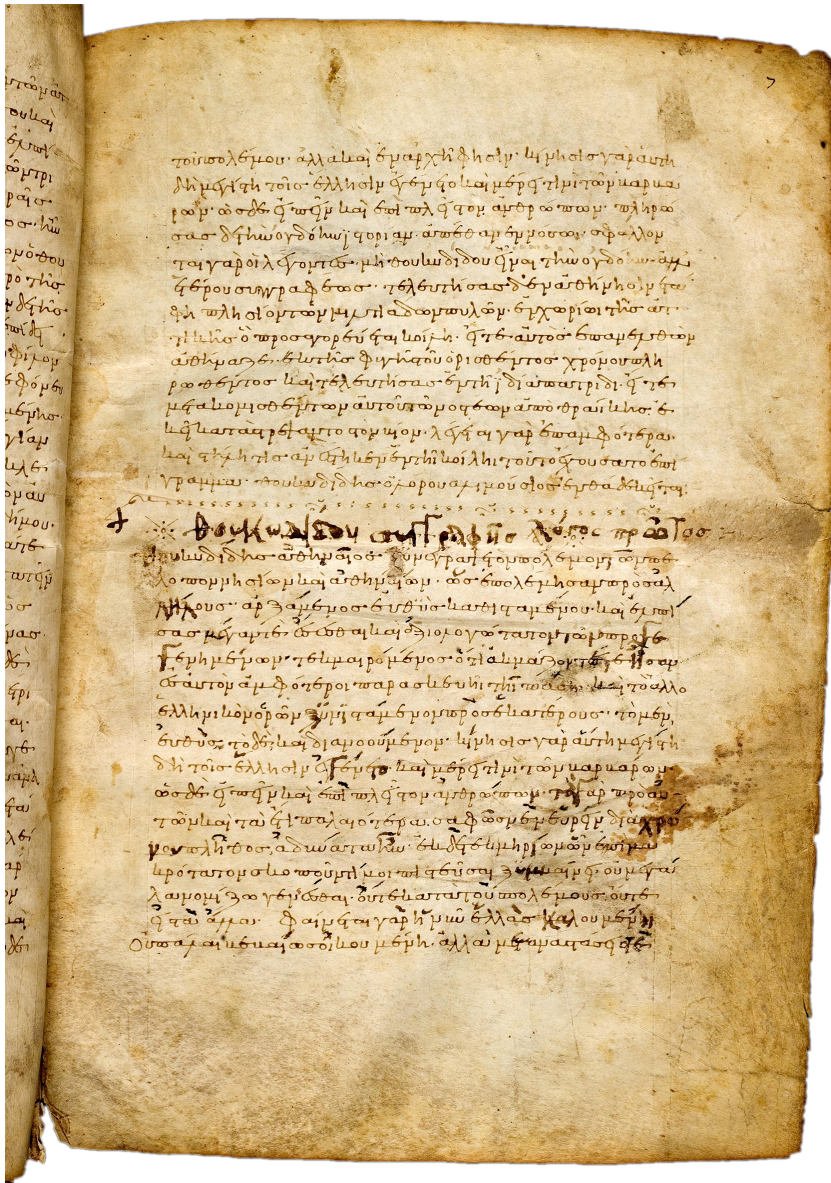 τοῦ πολέμου· ἀλλὰ καὶ ἐν ἀρχῇ φησίν· κίνησις γὰρ αὕτη
δὴ μεγίστη τοῖς ἕλλησιν ἐγένετο καὶ μέρει τινὶ τῶν βαρβα
ρων· ὡς δὲ εἰπεῖν καὶ ἐπὶ πλεῖστον ἀνθρώπων· πληρώ
σας δὲ τὴν ὀγδόην ἱστορίαν· ἀπέθανεν νόσῳ· σφάλλον
ται γὰρ οἱ λέγοντες· μὴ θουκυδίδου εἶναι τὴν ὀγδόην· ἀλλ
ἑτέρου συγγραφέως· τελευτήσας δ' ἐν ἀθήνησιν ἐτά
φη πλησίον τῶν πυλῶν· ἐν χωρίῳ τῆς ἀτ
τικῆς ὃ προσαγορεύεται κοίλη· εἴτε αὐτὸς ἐπανελθὼν
ἀθήναζε· ἐκ τῆς φυγῆς τοῦ ὁρισθέντος χρόνου πλη
ρωθέντος καὶ τελευτήσας ἐν τῇ ἰδίᾳ πατρίδι· εἴτε
μετακομισθέντων αὐτοῦ τῶν ὀστέων ἀπὸ θράκης ἐ
κεῖ καταστρέψαντο τὸν βίον· λέγεται γὰρ ἐπ' ἀμφότερα·
καὶ στήλη τις ἀνέστηκεν ἐν τῇ κοίλῃ τοῦτο ἔχουσα τὸ ἐπί
γραμμα· θουκυδίδης ὀλόρου ἁλιμούσιος ἐνθάδε κεῖται
θουκυδίδου συγγραφῆς λόγος πρῶτος
θουκυδίδης ἀθηναῖος ξυνέγραψε τὸν πόλεμον τῶν πε
λοποννησίων καὶ ἀθηναίων· ὡς ἐπολέμησαν πρὸς ἀλ
λήλους· ἀρξάμενος εὐθὺς καθισταμένου· καὶ ἐλπί
σας μέγαν τε ἔσεσθαι καὶ ἀξιολογώτατον τῶν προγε
γενημένων· τεκμαιρόμενος· ὅτι ἀκμάζοντές τε ἦσαν
ἐς αὐτὸν ἀμφότεροι παρασκευῇ τῇ πάσῃ· καὶ τὸ ἄλλο
ἑλληνικὸν ὁρῶν ξυνιστάμενον πρὸς ἑκατέρους· τὸ μὲν
εὐθὺς, τὸ δὲ καὶ διανοούμενον· κίνησις γὰρ αὕτη μεγίστη
δὴ τοῖς ἕλλησιν ἐγένετο καὶ μέρει τινὶ τῶν βαρβάρων·
ὡς δὲ εἰπεῖν καὶ ἐπὶ πλεῖστον ἀνθρώπων· τὰ γὰρ πρὸ αὐ
τῶν καὶ τὰ ἔτι παλαιότερα, σαφῶς μὲν εὑρεῖν διὰ χρό
νου πλῆθος, ἀδύνατα ἦν· ἐκ δὲ τεκμηρίων ὧν ἐπὶ μα
κρότατον σκοποῦντί μοι πιστεῦσαι ξυμβαίνει· οὐ μεγά
λα νομίζω γενέσθαι· οὔτε κατὰ τοὺς πολέμους, οὔτε
ἐς τὰ ἄλλα· φαίνεται γὰρ ἡ νῦν ἑλλὰς καλουμένη
οὐ πάλαι βεβαίως οἰκουμένη· ἀλλὰ μεταναστάσεις τε